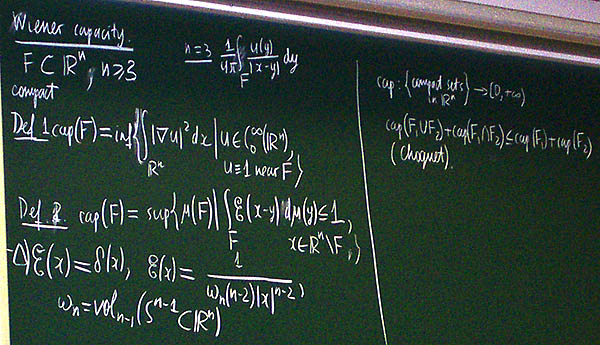 Wiener capacity.
F ⊂ ℝⁿ, n ≥ 3
compact
n=3 1/4π ∫_F u(y)/|x-y| dy
Def 1 cap(F) = inf{∫_ℝⁿ |∇u|² dx | u ∈ C₀^∞(ℝⁿ),
u ≡ 1 near F}
Def. 2. cap(F) = sup{μ(F) | ∫_F ℰ(x-y) dμ(y) ≤ 1,
x ∈ ℝⁿ\F,}
-Δℰ(x) = δ(x), ℰ(x) = 1/(ωₙ(n-2)|x|ⁿ⁻²),
ωₙ = volₙ₋₁(Sⁿ⁻¹ ⊂ ℝⁿ)
cap: {compact sets in ℝⁿ} → [0, +∞)
cap(F₁∪F₂) + cap(F₁∩F₂) ≤ cap(F₁) + cap(F₂)
(Choquet).